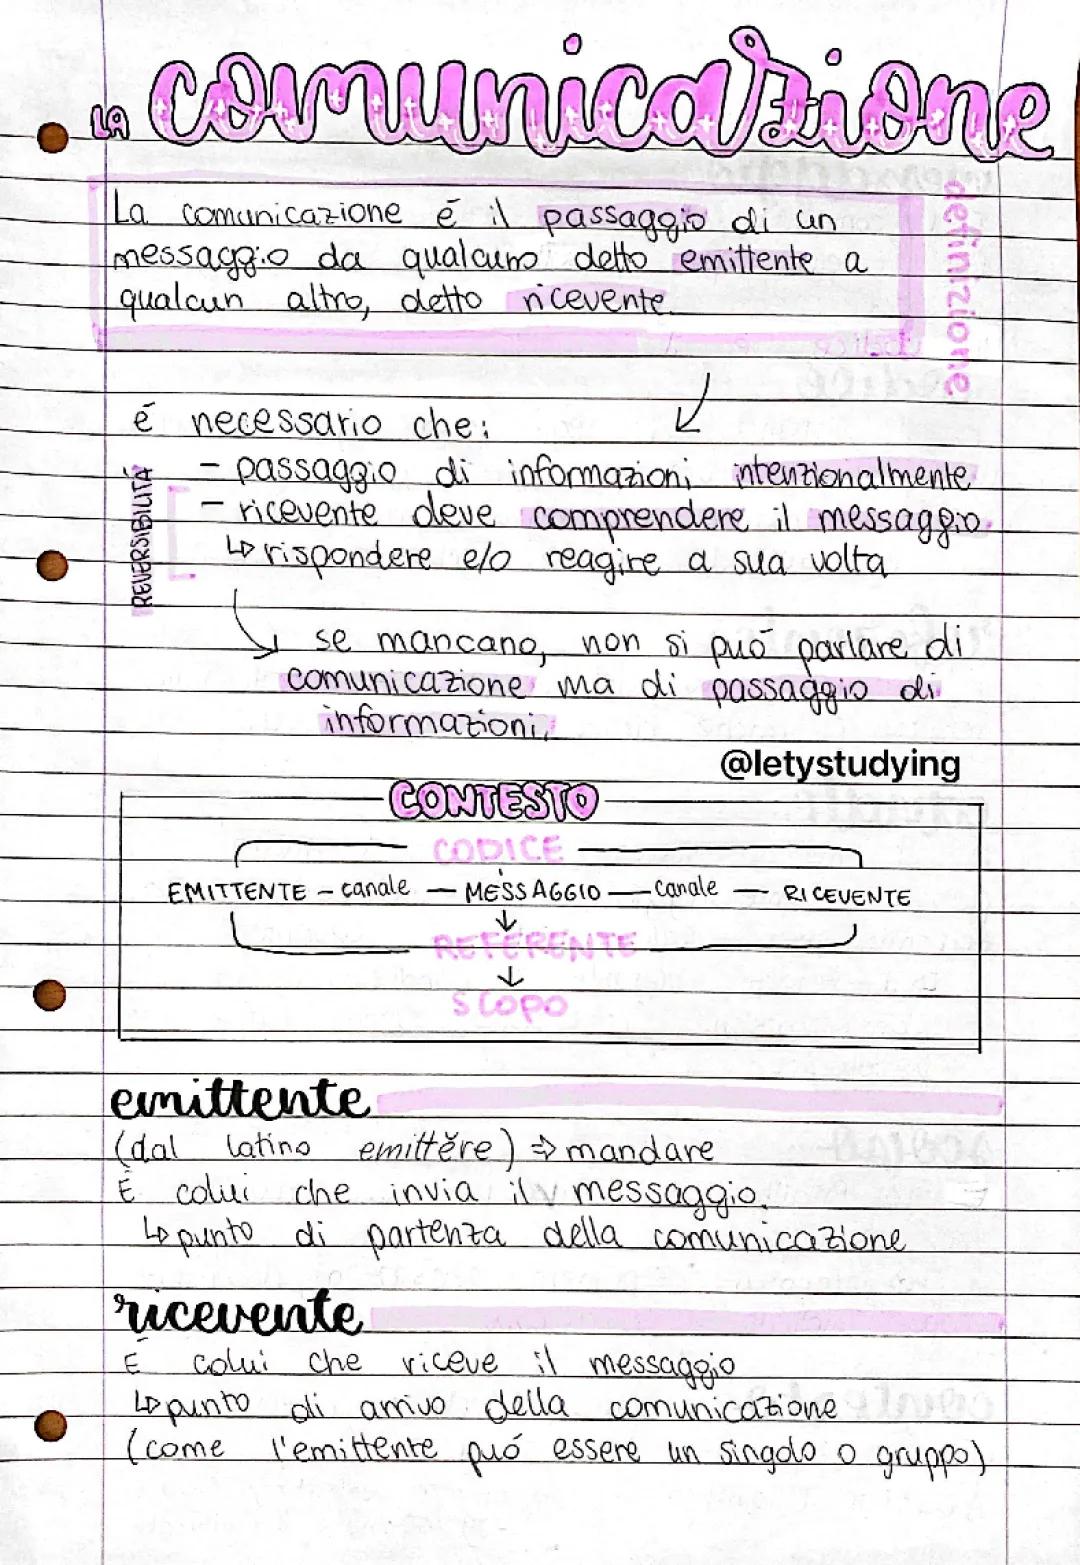 LA comunicazione
La comunicazione é il passaggio di un
messaggio da qualcuno detto emittente a
qualcun altro, detto ricevente.
definizione
é necessario che:
- passaggio di informazioni intenzionalmente
- ricevente deve comprendere il messaggio.
↳ rispondere e/o reagire a sua volta
REVERSIBILITÀ
↘ se mancano, non si puó parlare di
comunicazione ma di passaggio di
informazioni.
@letystudying
CONTESTO
CODICE
EMITTENTE - canale - MESSAGGIO - canale - RICEVENTE
↓
REFERENTE
↓
SCOPO
emittente
(dal latino emittĕre) ⇒ mandare
É colui che invia il messaggio.
↳ punto di partenza della comunicazione
ricevente
É colui che riceve il messaggio
↳ punto di arrivo della comunicazione
(come l'emittente puó essere un singolo o gruppo)